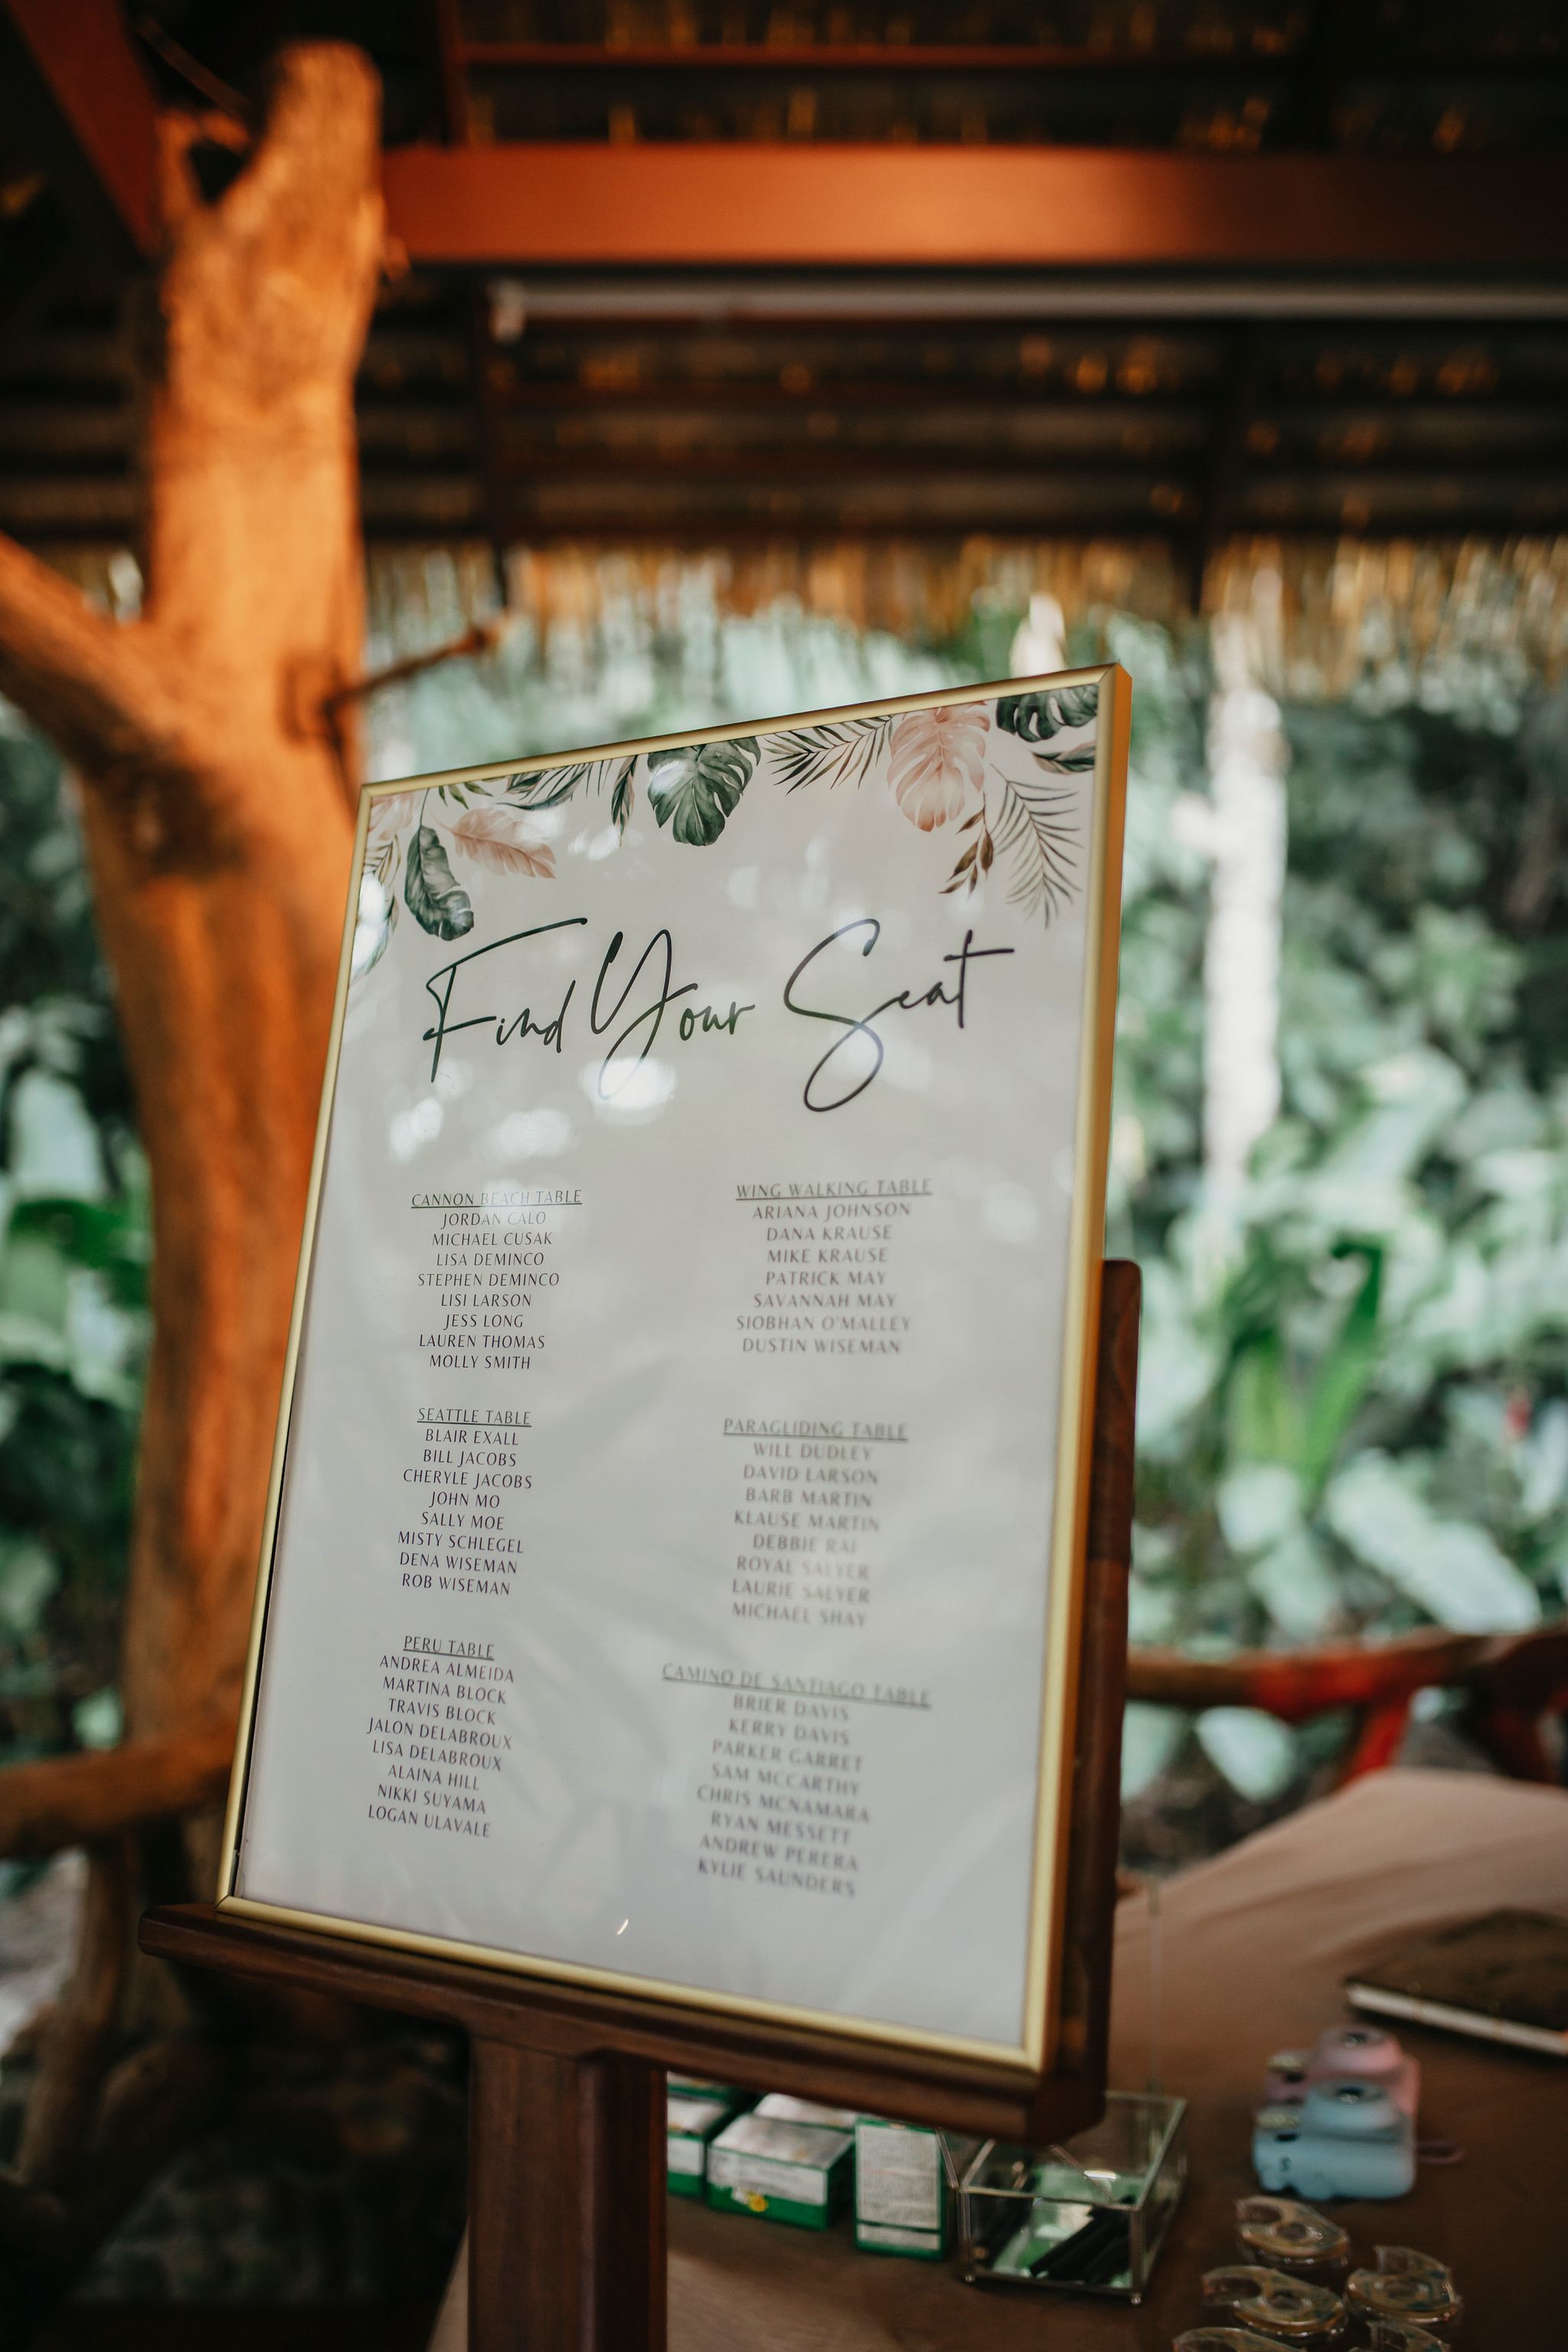 Find Your Seat
CANNON BEACH TABLE
JORDAN CALO
MICHAEL CUSAK
LISA DEMINCO
STEPHEN DEMINCO
LISI LARSON
JESS LONG
LAUREN THOMAS
MOLLY SMITH
SEATTLE TABLE
BLAIR EXALL
BILL JACOBS
CHERYLE JACOBS
JOHN MO
SALLY MOE
MISTY SCHLEGEL
DENA WISEMAN
ROB WISEMAN
PERU TABLE
ANDREA ALMEIDA
MARTINA BLOCK
TRAVIS BLOCK
JALON DELABROUX
LISA DELABROUX
ALAINA HILL
NIKKI SUYAMA
LOGAN ULAVALE
WING WALKING TABLE
ARIANA JOHNSON
DANA KRAUSE
MIKE KRAUSE
PATRICK MAY
SAVANNAH MAY
SIOBHAN O'MALLEY
DUSTIN WISEMAN
PARAGLIDING TABLE
WILL DUDLEY
DAVID LARSON
BARB MARTIN
KLAUSE MARTIN
DEBBIE RAI
ROYAL SALYER
LAURIE SALYER
MICHAEL SHAY
CAMINO DE SANTIAGO TABLE
BRIER DAVIS
KERRY DAVIS
PARKER GARRET
SAM MCCARTHY
CHRIS MCNAMARA
RYAN MESSETT
ANDREW PERERA
KYLIE SAUNDERS